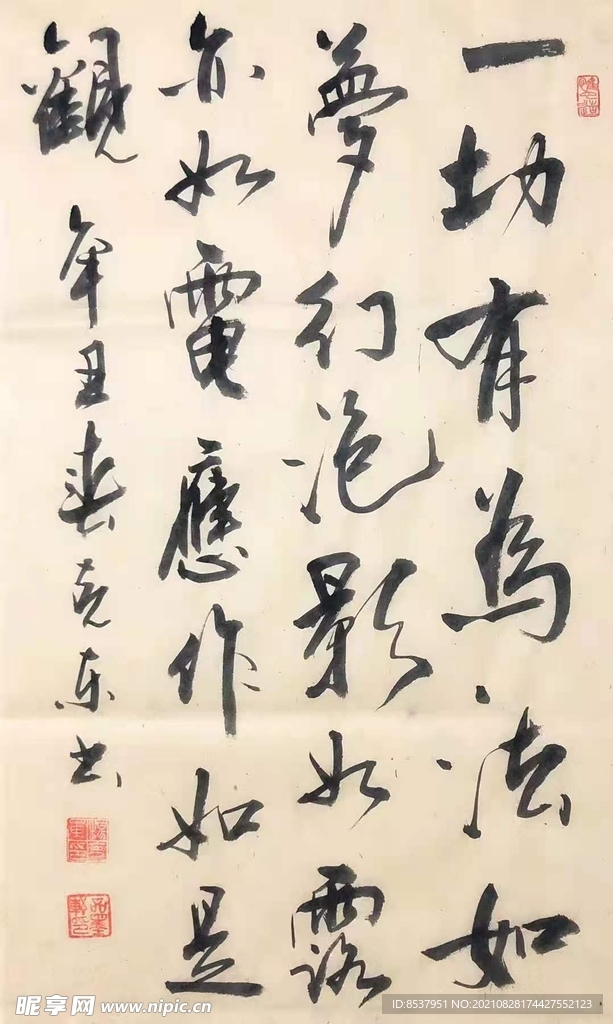 一切有為法如
夢幻泡影如露
亦如電應作如是
觀 辛丑春克东书
昵享网 www.nipic.cn
ID:8537951 NO:20210828174427552123